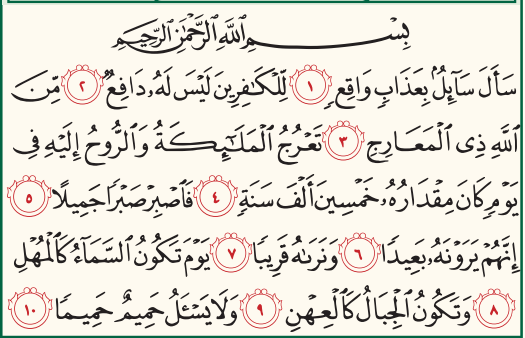 بِسْمِ ٱللَّهِ ٱلرَّحْمَٰنِ ٱلرَّحِيمِ
سَأَلَ سَآئِلُۢ بِعَذَابٖ وَاقِعٖ ١ لِّلۡكَٰفِرِينَ لَيۡسَ لَهُۥ دَافِعٞ ٢ مِّنَ
ٱللَّهِ ذِي ٱلۡمَعَارِجِ ٣ تَعۡرُجُ ٱلۡمَلَٰٓئِكَةُ وَٱلرُّوحُ إِلَيۡهِ فِي
يَوۡمٖ كَانَ مِقۡدَارُهُۥ خَمۡسِينَ أَلۡفَ سَنَةٖ ٤ فَٱصۡبِرۡ صَبۡرٗا جَمِيلًا ٥
إِنَّهُمۡ يَرَوۡنَهُۥ بَعِيدٗا ٦ وَنَرَىٰهُ قَرِيبٗا ٧ يَوۡمَ تَكُونُ ٱلسَّمَآءُ كَٱلۡمُهۡلِ
٨ وَتَكُونُ ٱلۡجِبَالُ كَٱلۡعِهۡنِ ٩ وَلَا يَسۡـَٔلُ حَمِيمٌ حَمِيمٗا ١٠